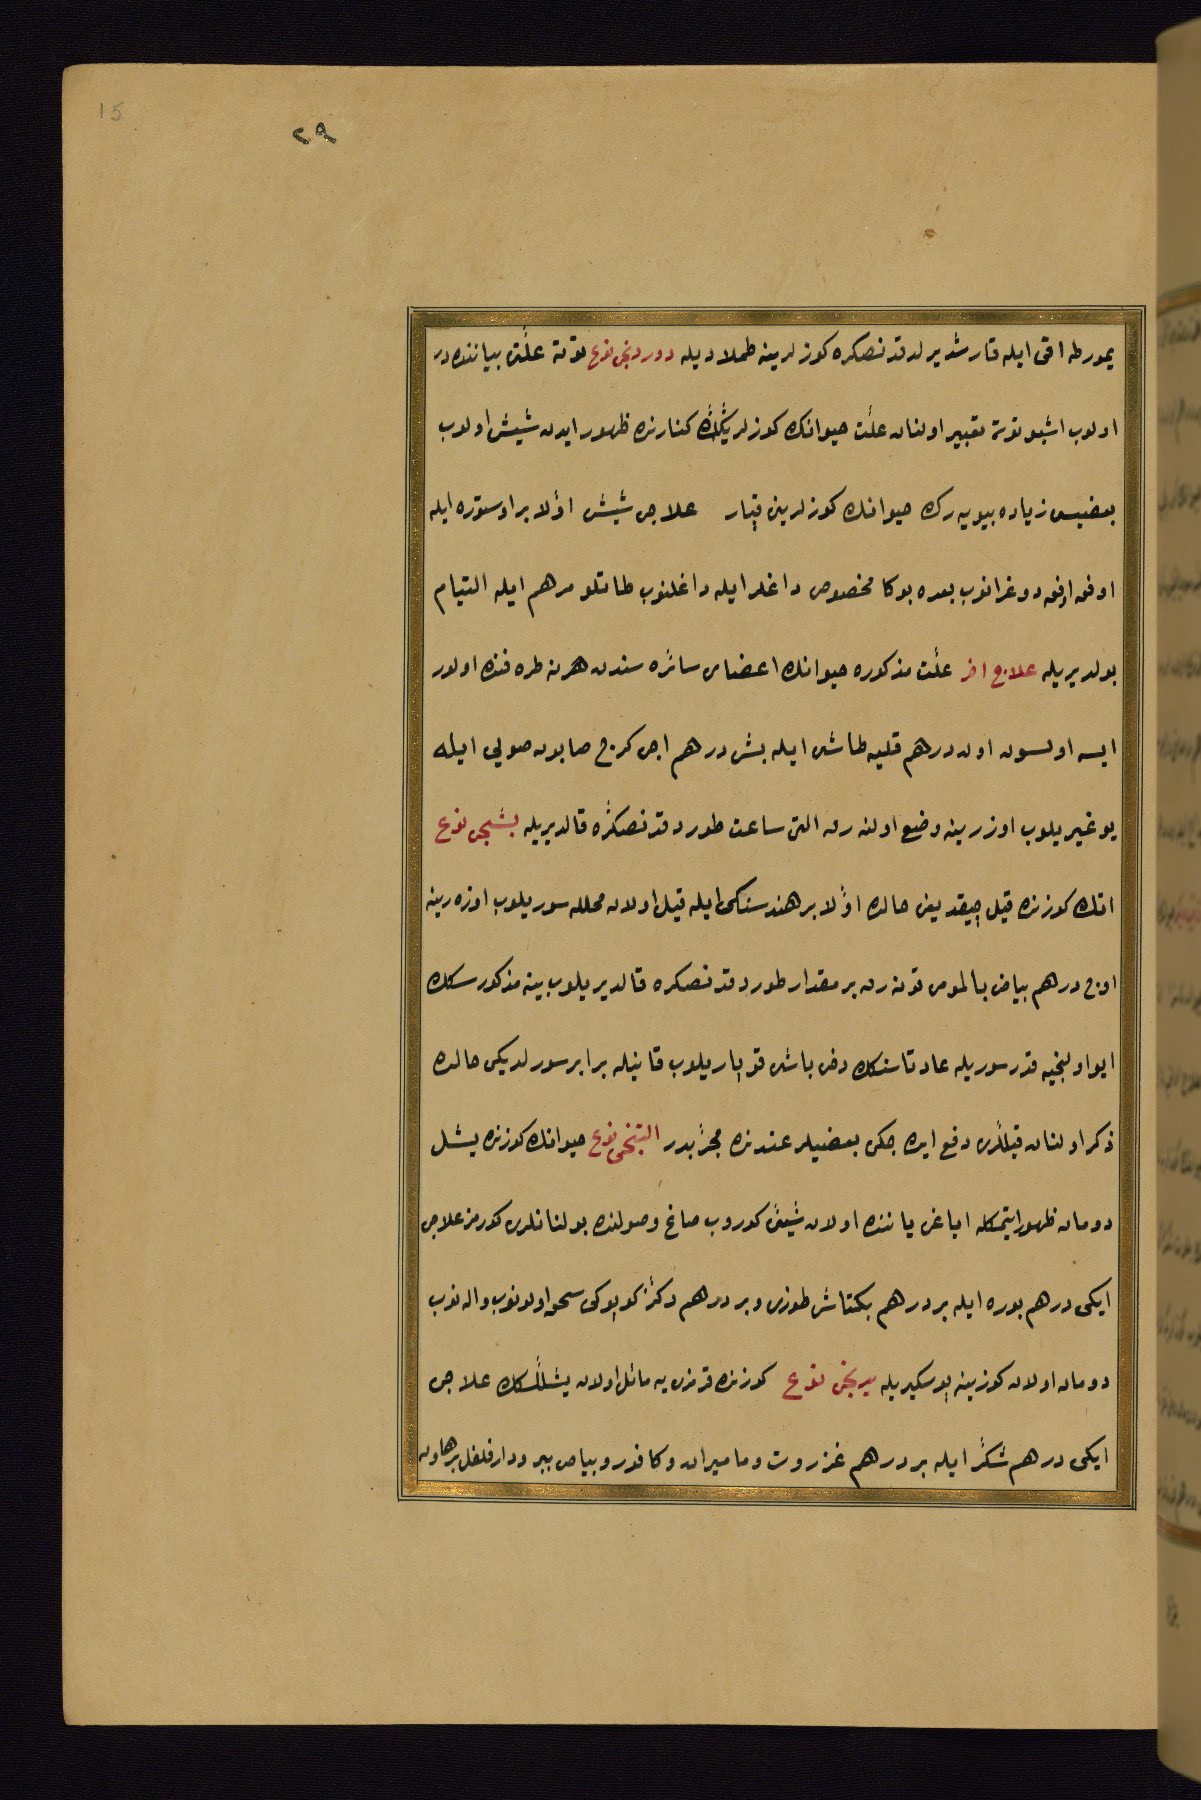 15
٢٩
يمورطه اقى ايله قارشديرلدقدنصكره كوزلرينه طملاديله دوردنجى نوع توته علتى بياننده در
اولوب اشبو توته تعبير اولنان علت حيوانك كوزلرينك كنارنده ظهور ايدن شيش اولوب
بعضيسى زياده بيويه رك حيوانك كوزلرينى قپار علاجى شيش اولا بر اوستوره ايله
اوفه اوفه دوغرانوب بعده بوكا مخصوص داغلر ايله داغلنوب طاتلو مرهم ايله التيام
بولديريله علاج اخر علت مذكوره حيوانك اعضاى سائره سندن هر نه طرفنده اولور
ايسه اولسون اون درهم قليه طاشى ايله بش درهم اجى كرج صابون صويى ايله
يوغيريلوب اوزرينه وضع اولنه رق التى ساعت طوردقدنصكره قالديريله بشنجى نوع
اتك كوزنده قيل چيقديغى حالده اولا بر هند سنكى ايله قيل اولان محلله سوريلوب اوزه رينه
اوج درهم بياض بالمومى قونه رق بر مقدار طوردقدنصكره قالديريلوب ينه مذكور سنكله
ايو اولنجيه قدر سوريله عادتا سنكله دخى باشى قوپاريلوب قانيله برابر سورلديكى حالده
ذكر اولنان قيللرى دفع ايده جكى بعضيلر عندنده مجربدر التنجى نوع حيوانك كوزنده يشل
دومان ظهور ايتمكله اياغى ياننده اولان شيئى كوروب صاغ وصولنده بولنانلرى كورمز علاجى
ايكى درهم بوره ايله بر درهم بكتاشى طوزى وبر درهم دكز كوپوكى سحق اولنوب والنوب
دومان اولان كوزينه پوسكيريله يدنجى نوع كوزنده قرمزى يه مائل اولان يشللكك علاجى
ايكى درهم شكر ايله بر درهم عنزروت وماميران وكافور وبياض ببر ودارفلفل بر هاونه